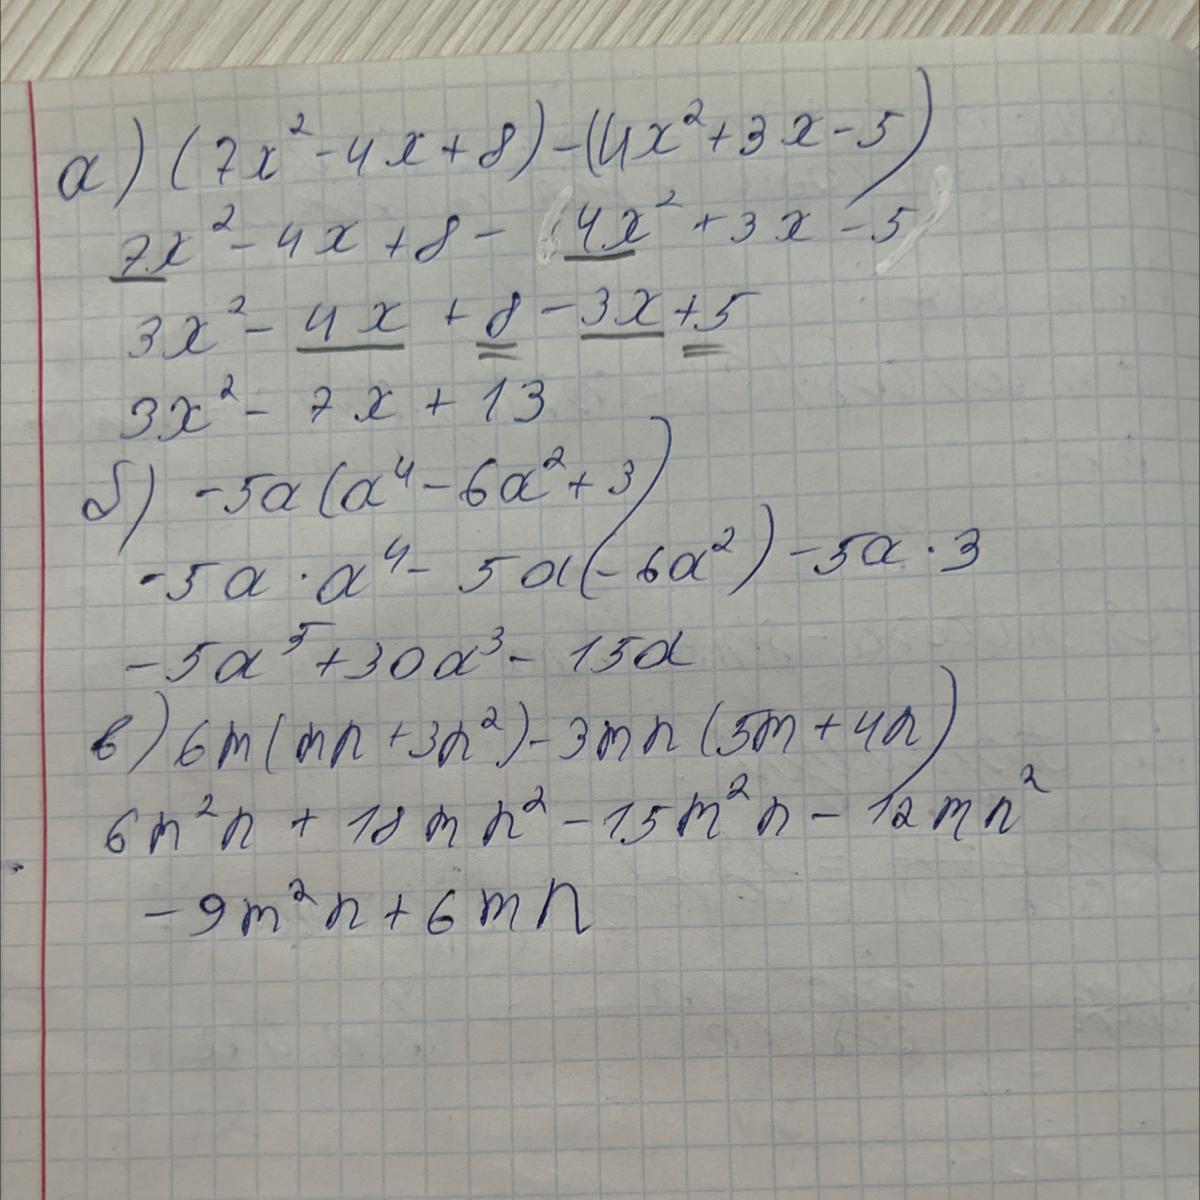 а) (7x² - 4x + 8) - (4x² + 3x - 5)
7x² - 4x + 8 - (4x² + 3x - 5)
3x² - 4x + 8 - 3x + 5
3x² - 7x + 13
б) -5a(a⁴ - 6a² + 3)
-5a · a⁴ - 5a(-6a²) - 5a · 3
-5a⁵ + 30a³ - 15a
в) 6m(mn + 3n²) - 3mn(5m + 4n)
6m²n + 18mn² - 15m²n - 12mn²
-9m²n + 6mn